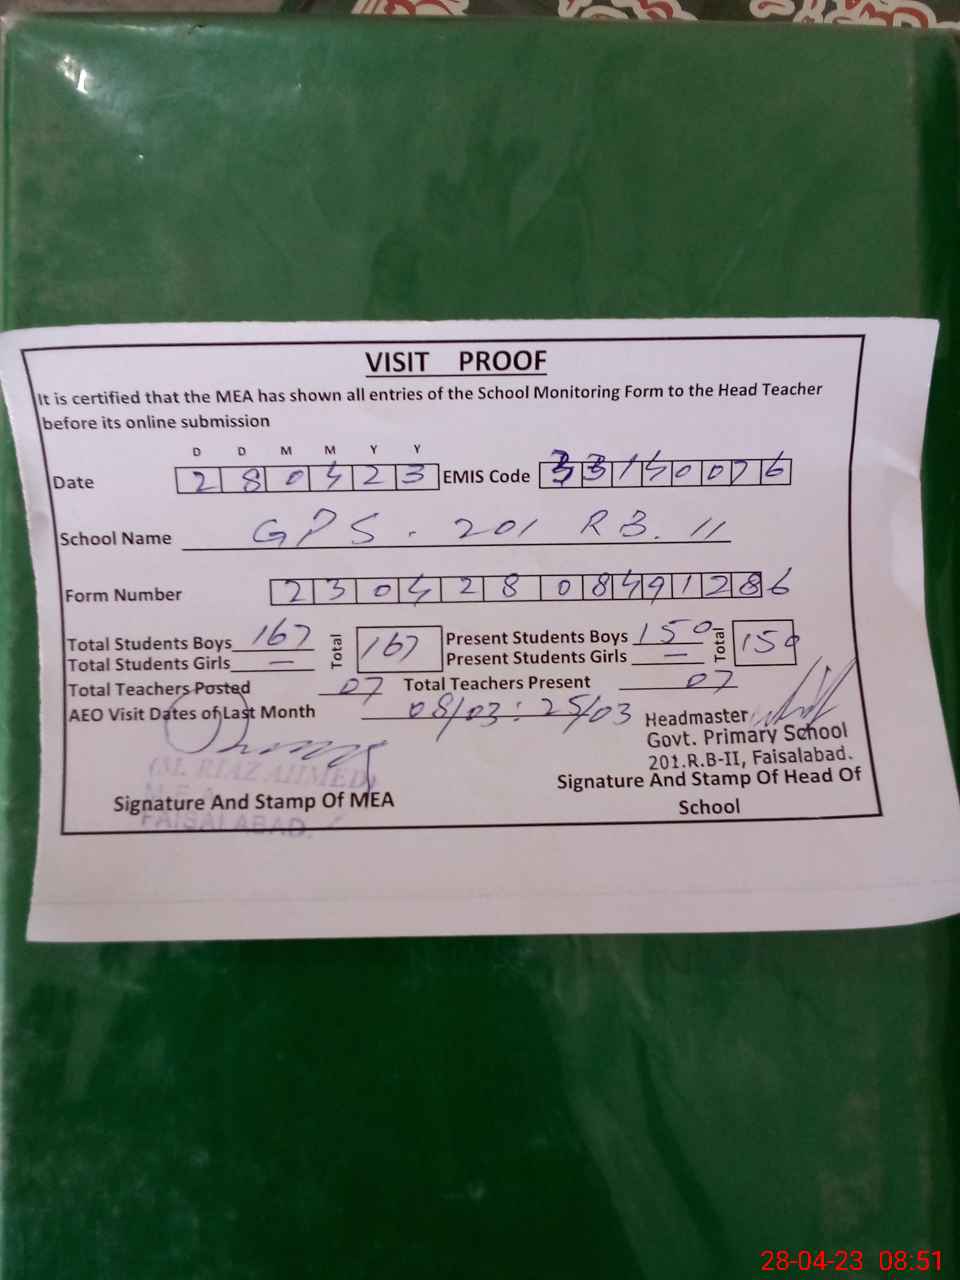 VISIT PROOF
It is certified that the MEA has shown all entries of the School Monitoring Form to the Head Teacher
before its online submission
D D M M Y Y
Date 280423 EMIS Code 33140076
School Name GPS. 201 RB. II
Form Number 23042808491286
Total Students Boys 167 Total 167 Present Students Boys 150 Total 150
Total Students Girls — Present Students Girls —
Total Teachers Posted 07 Total Teachers Present 07
AEO Visit Dates of Last Month 08/03 : 25/03
Headmaster
Govt. Primary School
201.R.B-II, Faisalabad.
(M. RIAZ AHMED)
M E A
FAISALABAD.
Signature And Stamp Of MEA
Signature And Stamp Of Head Of
School
28-04-23 08:51